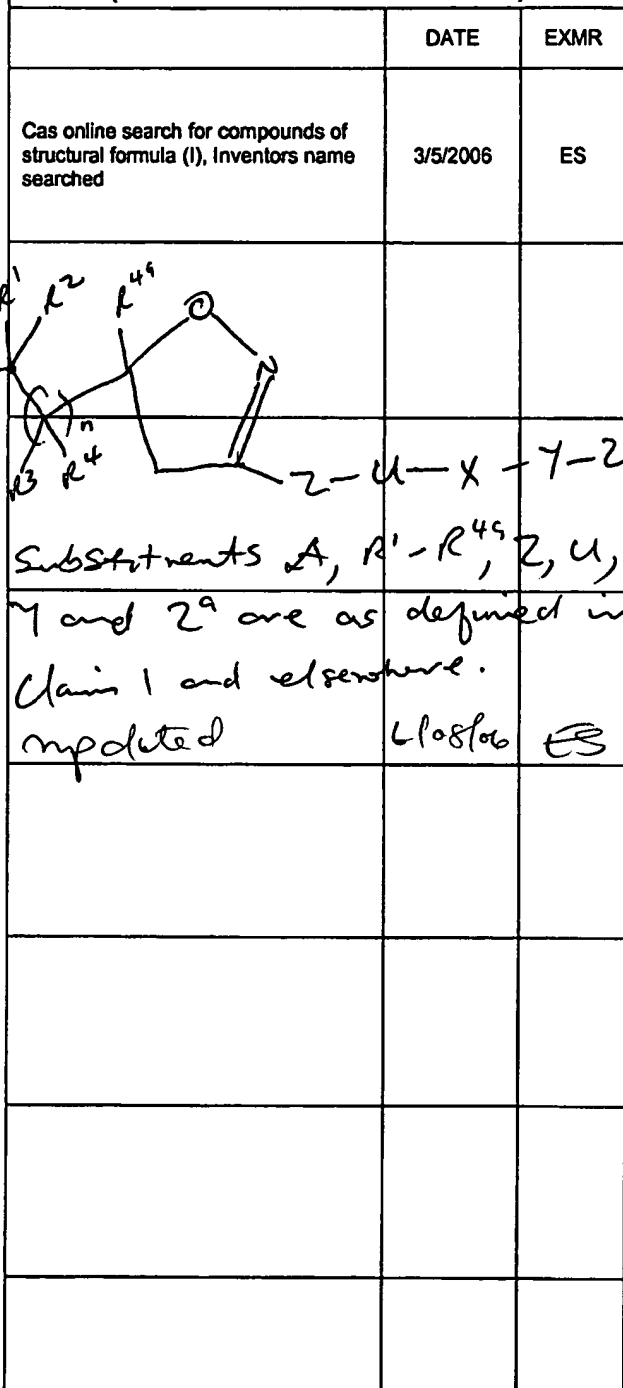 DATE EXMR
Cas online search for compounds of
structural formula (I), Inventors name
searched
3/5/2006 ES
R¹ R² R⁴ᵃ O
N
( )n
R³ R⁴
Z-U-X-Y-Z
Substituents A, R¹-R⁴ᵃ, Z, U,
Y and Zᵃ are as defined in
Claim 1 and elsewhere.
updated ES